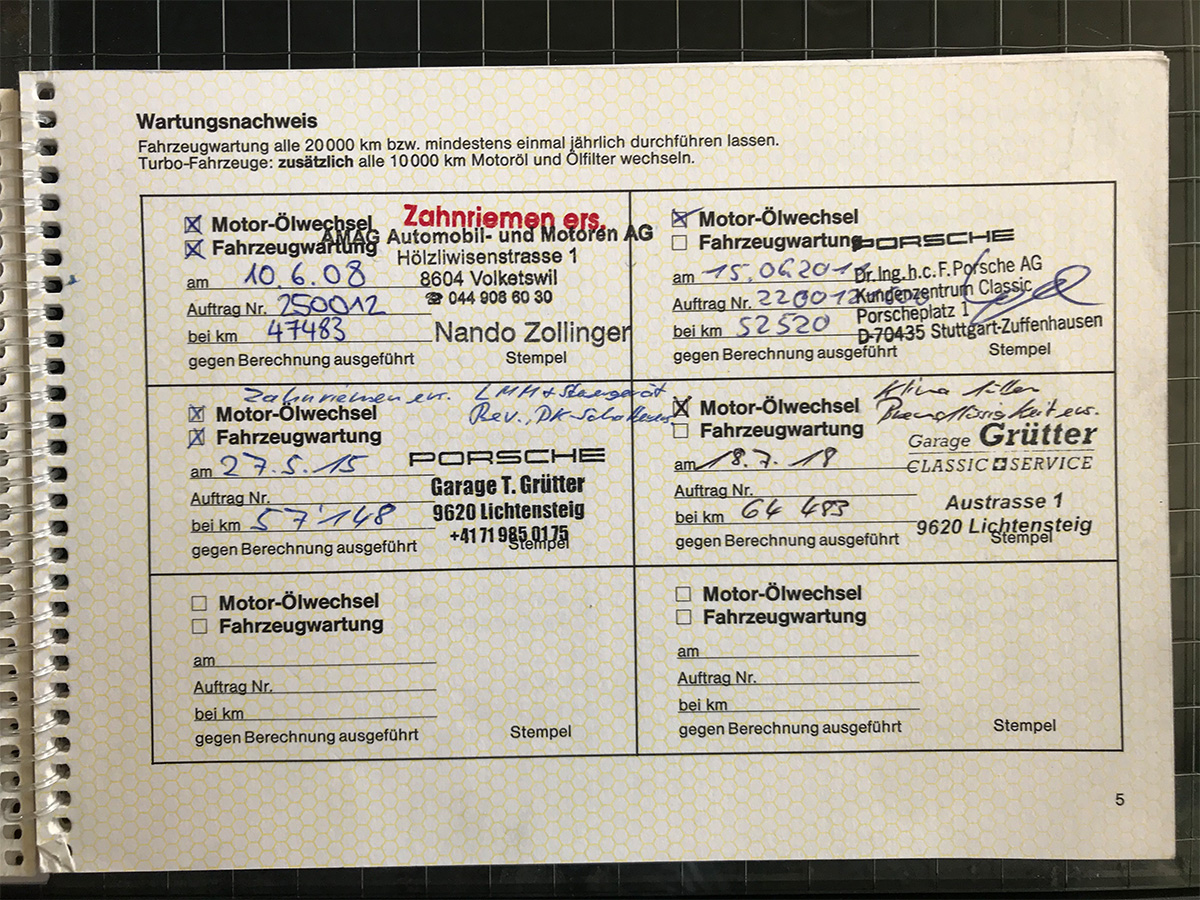 Wartungsnachweis
Fahrzeugwartung alle 20 000 km bzw. mindestens einmal jährlich durchführen lassen.
Turbo-Fahrzeuge: zusätzlich alle 10 000 km Motoröl und Ölfilter wechseln.
Motor-Ölwechsel
Zahnriemen ers.
Fahrzeugwartung
AMAG Automobil- und Motoren AG
Hölzliwisenstrasse 1
8604 Volketswil
☎ 044 908 60 30
Nando Zollinger
am 10.6.08
Auftrag Nr. 250012
bei km 47483
gegen Berechnung ausgeführt
Stempel
Motor-Ölwechsel
Fahrzeugwartung
PORSCHE
Dr.Ing.h.c.F.Porsche AG
Kundenzentrum Classic
Porscheplatz 1
D-70435 Stuttgart-Zuffenhausen
am 15.06.201
Auftrag Nr. 220012
bei km 52520
gegen Berechnung ausgeführt
Stempel
Zahnriemen ers. LMM + Steuergerät
Rev.,
Motor-Ölwechsel
Fahrzeugwartung
am 27.5.15
Auftrag Nr.
bei km 57'148
gegen Berechnung ausgeführt
PORSCHE
Garage T. Grütter
9620 Lichtensteig
+41 71 985 01 75
Stempel
Klima
Bremsflüssigkeit ers.
Motor-Ölwechsel
Fahrzeugwartung
Garage Grütter
CLASSIC SERVICE
Austrasse 1
9620 Lichtensteig
am 18.7.18
Auftrag Nr.
bei km 64 483
gegen Berechnung ausgeführt
Stempel
Motor-Ölwechsel
Fahrzeugwartung
am
Auftrag Nr.
bei km
gegen Berechnung ausgeführt
Stempel
Motor-Ölwechsel
Fahrzeugwartung
am
Auftrag Nr.
bei km
gegen Berechnung ausgeführt
Stempel
5